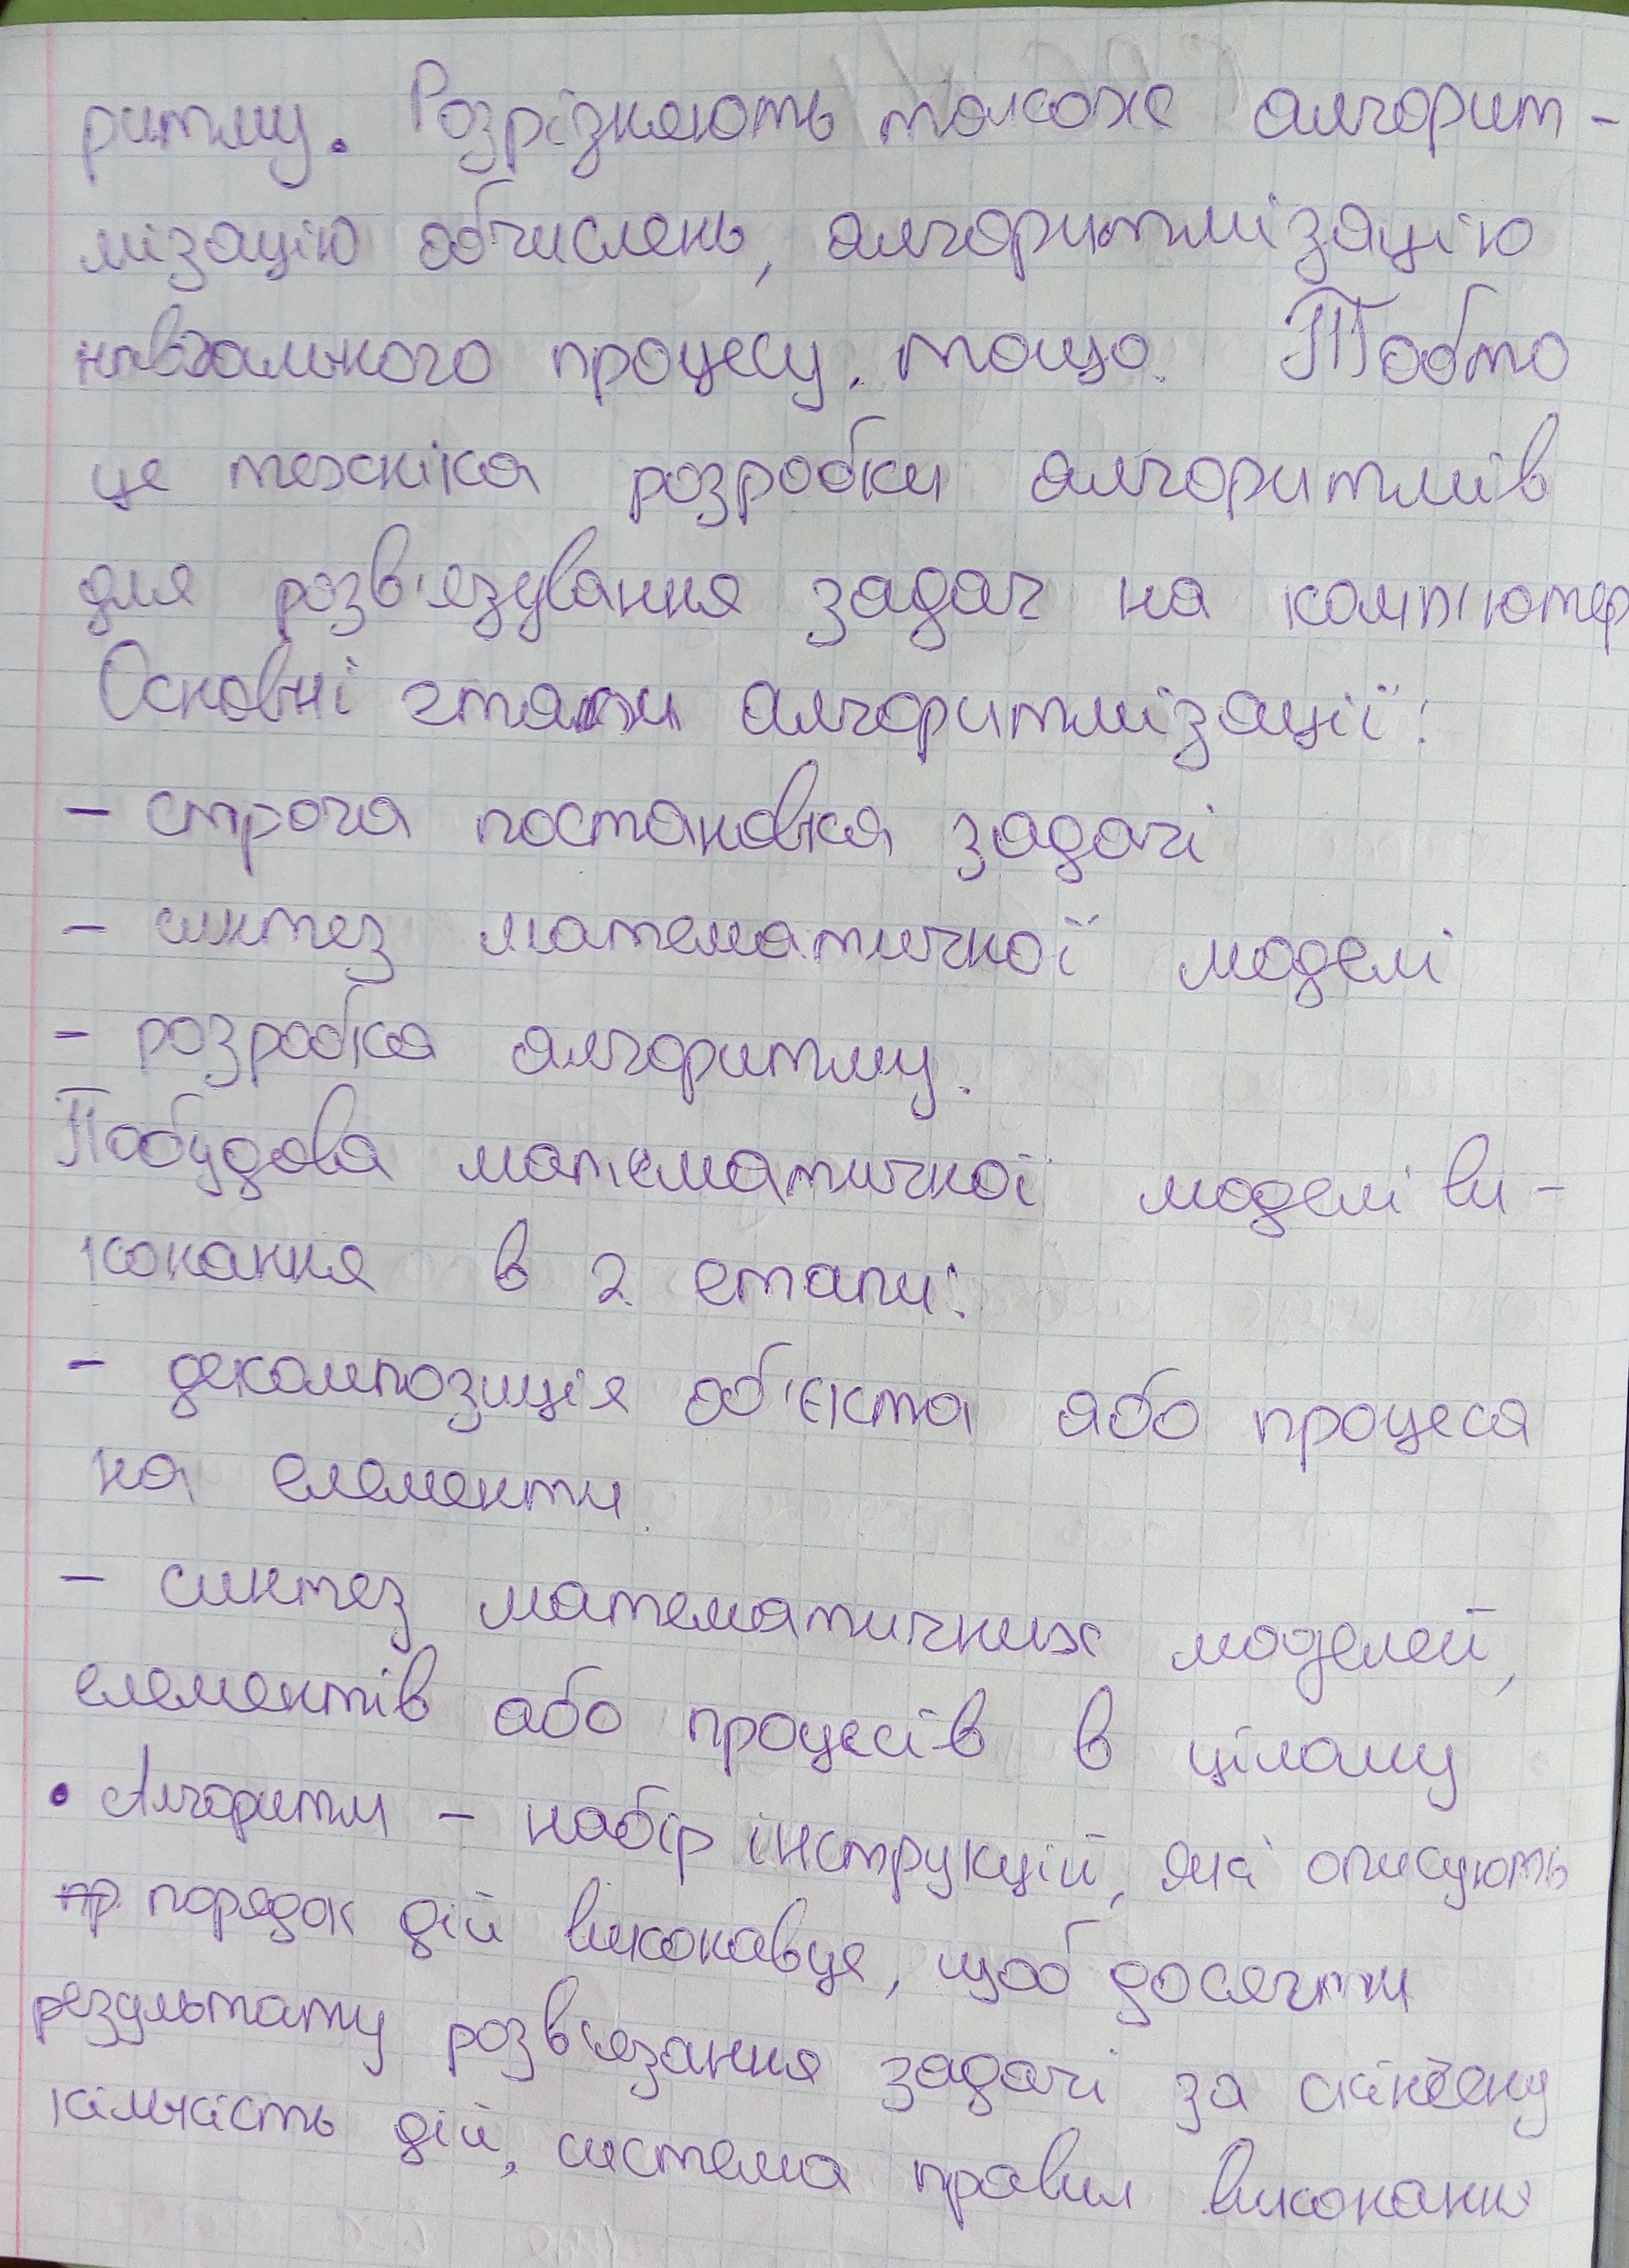 ритму. Розрізняють також алгорит-
мізацію обчислень, алгоритмізацію
навчального процесу, тощо. Тобто
це техніка розробки алгоритмів
для розв'язування задач на комп'ютер
Основні етапи алгоритмізації:
- строга постановка задачі
- синтез математичної моделі
- розробка алгоритму.
Побудова математичної моделі ви-
конання в 2 етапи:
- декомпозиція об'єкта або процеса
на елементи.
- синтез математичних моделей,
елементів або процесів в цілому
• Алгоритм - набір інструкцій, які описують
пр порядок дій виконавця, щоб досягти
результату розв'язання задачі за скінчену
кількість дій, система правил виконання